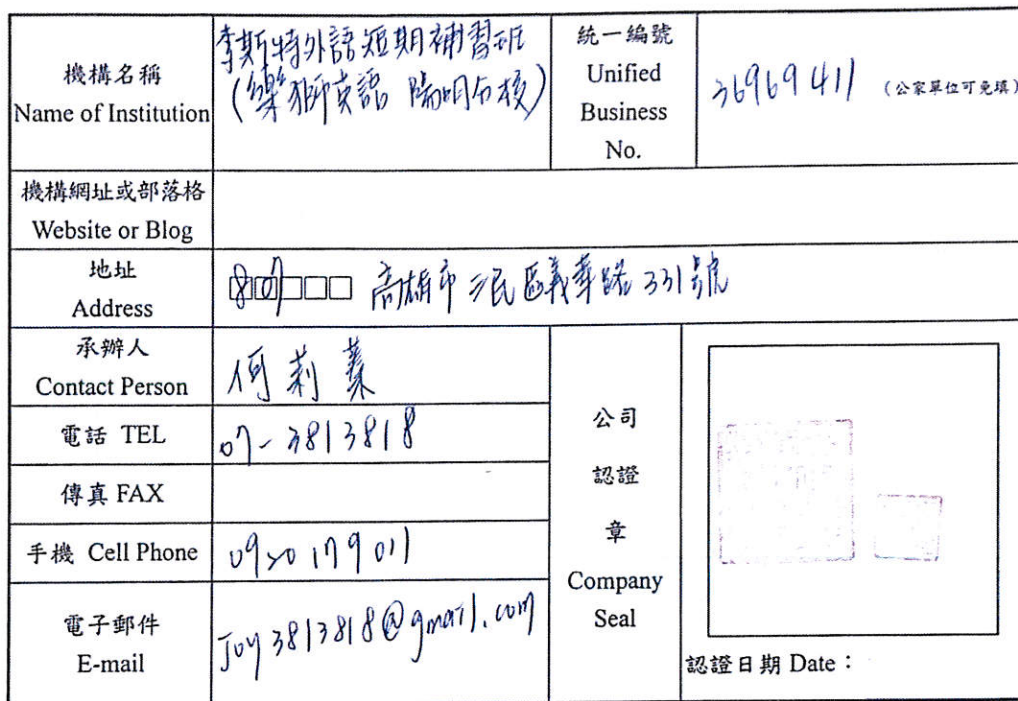 機構名稱
Name of Institution
李斯特外語短期補習班
(樂獅英語 陽明分校)
統一編號
Unified
Business
No.
36969411 (公家單位可免填)
機構網址或部落格
Website or Blog
地址
Address
807 高雄市三民區義華路331號
承辦人
Contact Person
何莉蓁
電話 TEL
07-3813818
傳真 FAX
手機 Cell Phone
0920179011
電子郵件
E-mail
Joy3813818@gmail.com
公司
認證
章
Company
Seal
認證日期 Date：